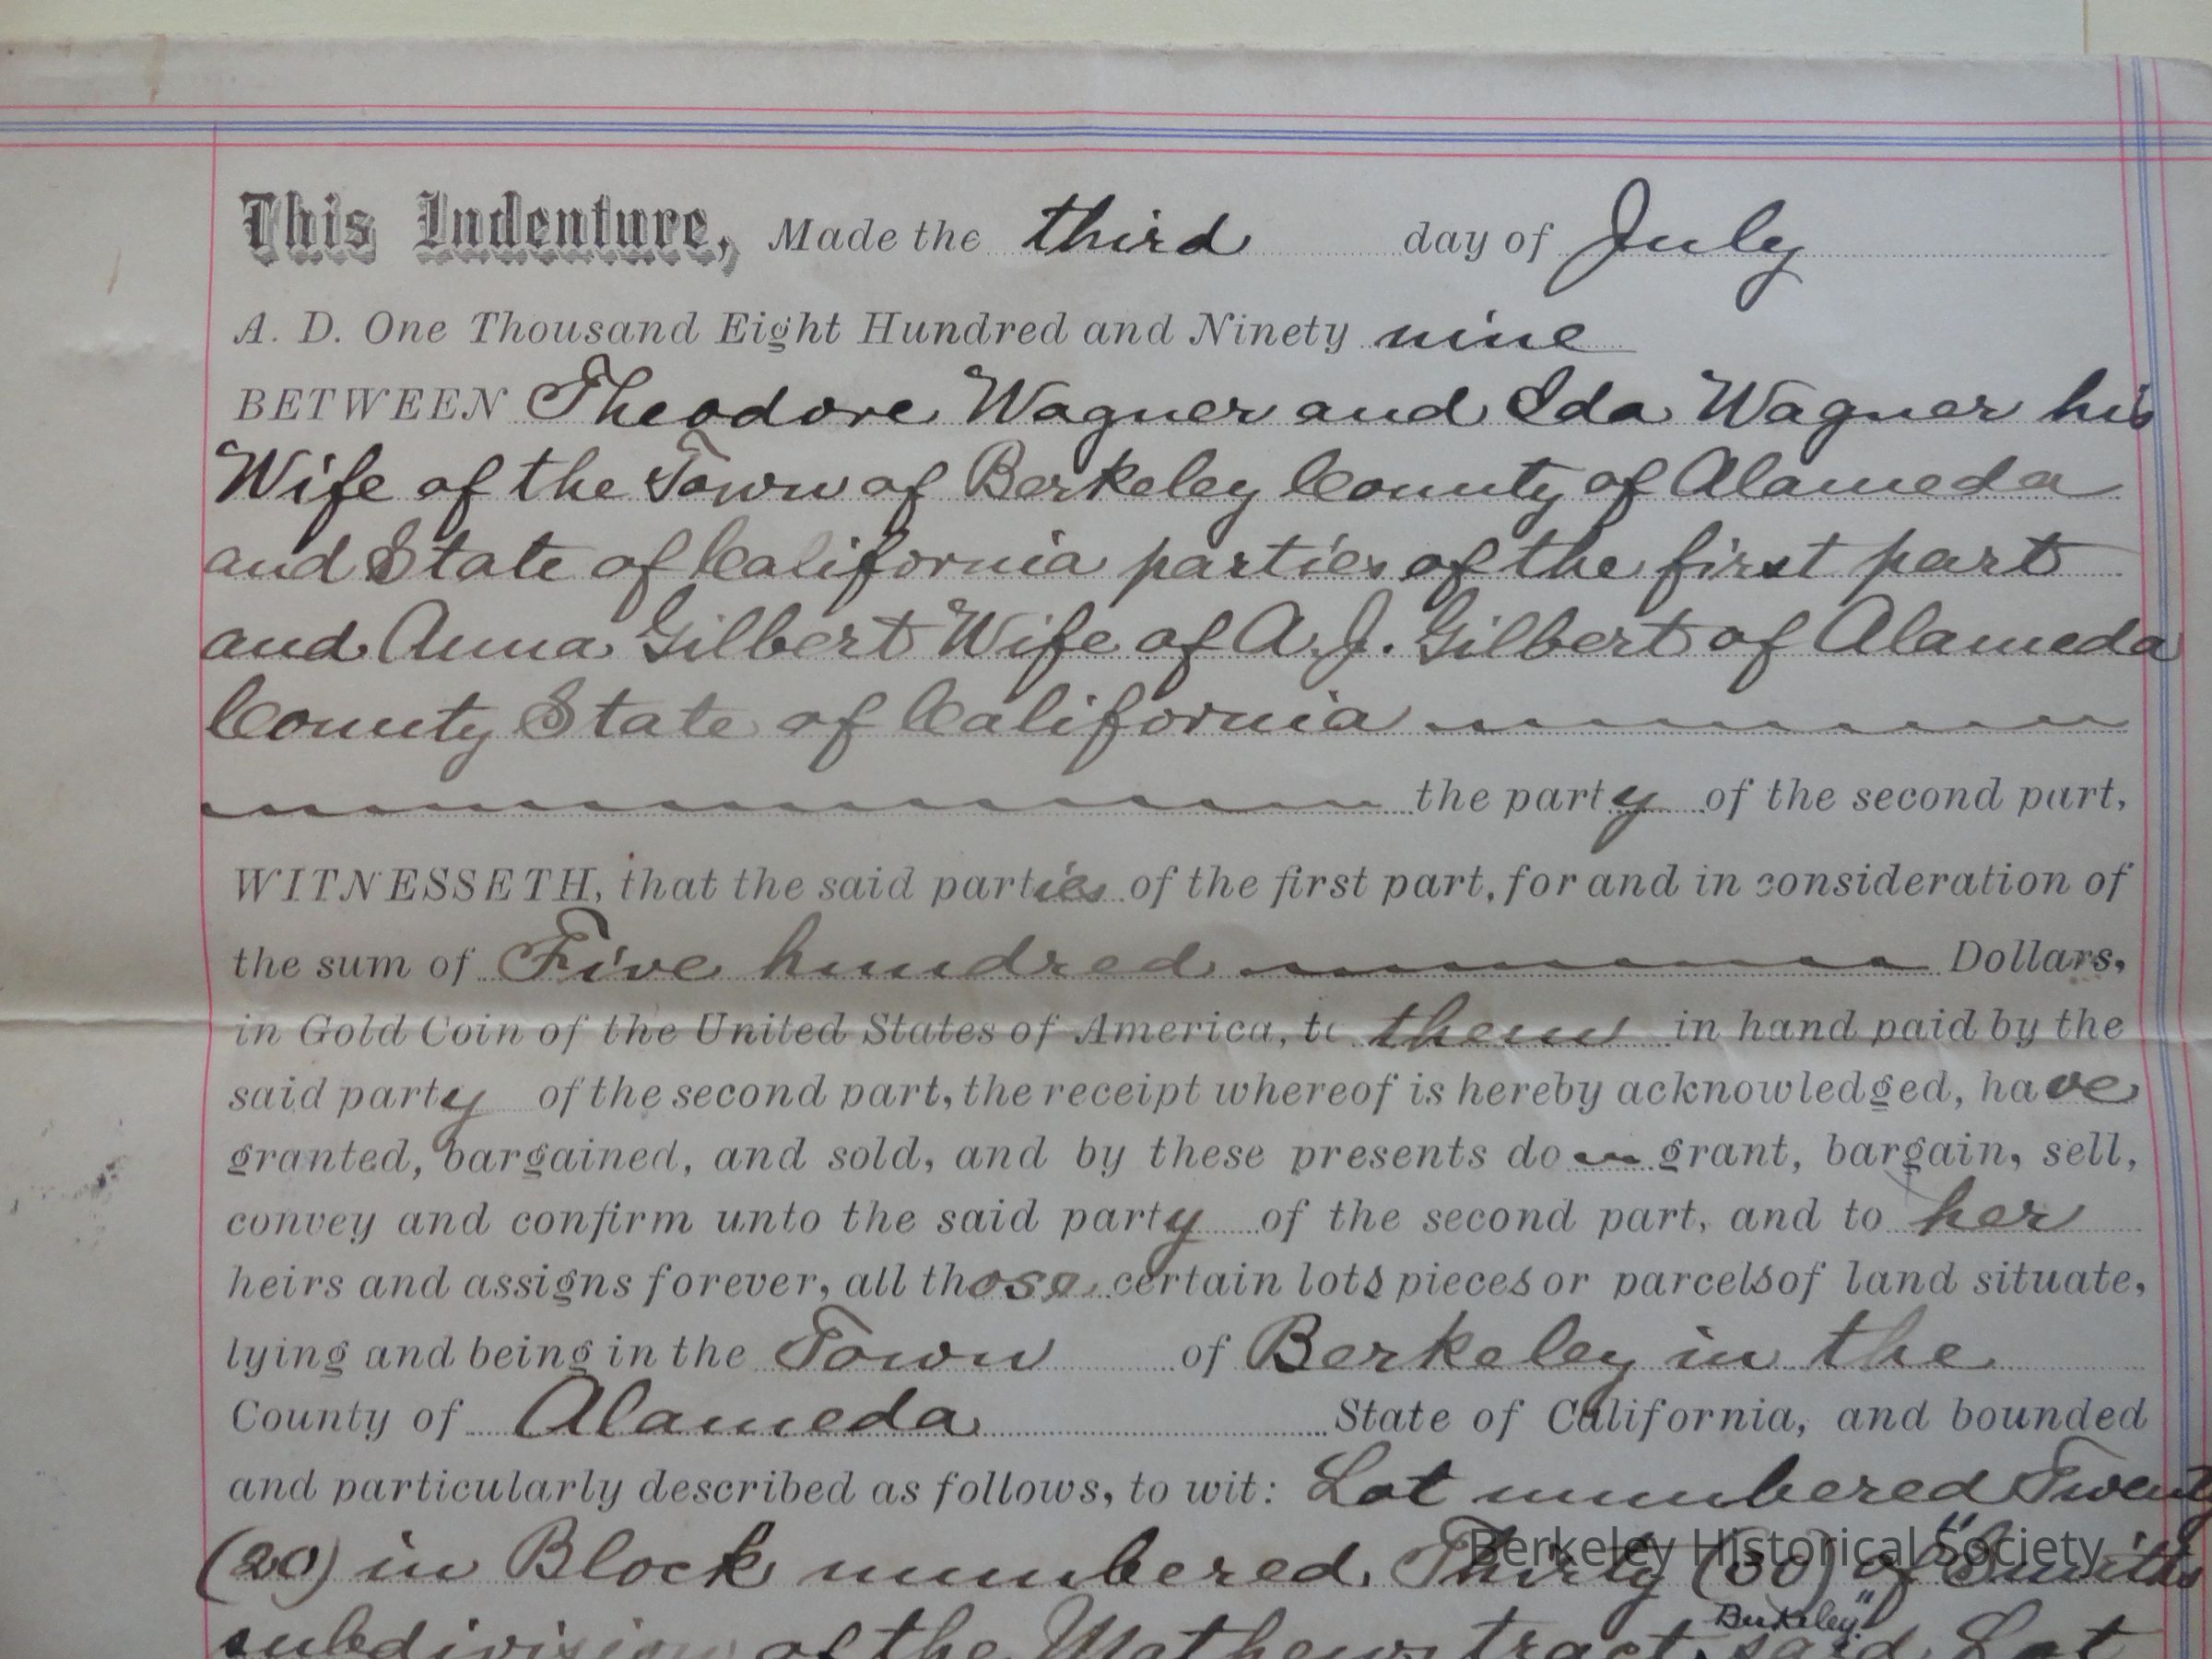 This Indenture, Made the third day of July
A. D. One Thousand Eight Hundred and Ninety nine
BETWEEN Theodore Wagner and Ida Wagner his
Wife of the Town of Berkeley County of Alameda
and State of California parties of the first part
and Anna Gilbert Wife of A. J. Gilbert of Alameda
County State of California
the party of the second part,
WITNESSETH, that the said parties of the first part, for and in consideration of
the sum of Five hundred Dollars,
in Gold Coin of the United States of America, to them in hand paid by the
said party of the second part, the receipt whereof is hereby acknowledged, have
granted, bargained, and sold, and by these presents do grant, bargain, sell,
convey and confirm unto the said party of the second part, and to her
heirs and assigns forever, all those certain lots pieces or parcels of land situate,
lying and being in the Town of Berkeley in the
County of Alameda State of California, and bounded
and particularly described as follows, to wit: Lot numbered Twenty
(20) in Block numbered Thirty (30) of "Smith's
Berkeley Historical Society
Berkeley"
subdivision of the Mathews tract said Lot